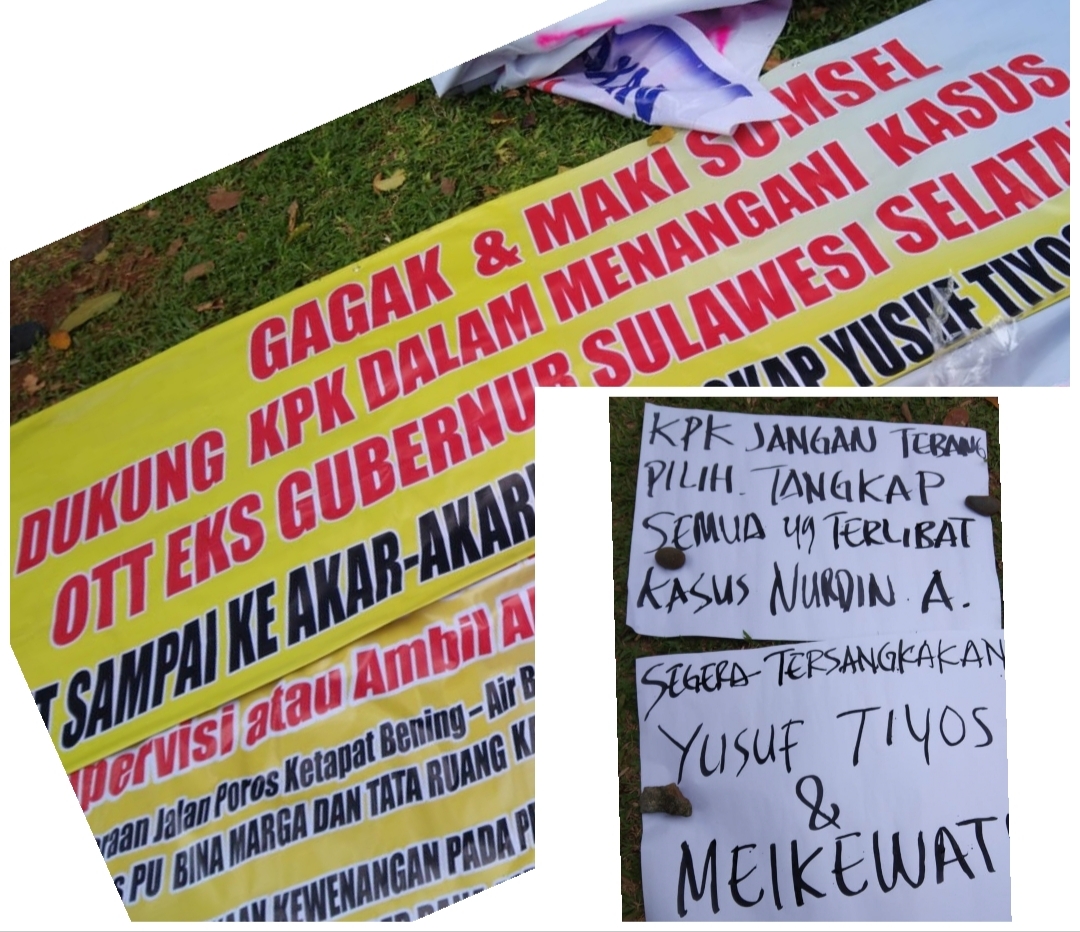 GAGAK & MAKI SUMSEL
DUKUNG KPK DALAM MENANGANI KASUS
OTT EKS GUBERNUR SULAWESI SELATA
T SAMPAI KE AKAR-AKAR
GKAP YUSUF TIYOS
pervisi atau Ambil A
raan Jalan Poros Ketapat Bening - Air B
s PU BINA MARGA DAN TATA RUANG K
KEWENANGAN PADA P
KPK JANGAN TEBANG
PILIH. TANGKAP
SEMUA YG TERLIBAT
KASUS NURDIN A.
SEGERA TERSANGKAKAN
YUSUF TIYOS
&
MEIKEWAT